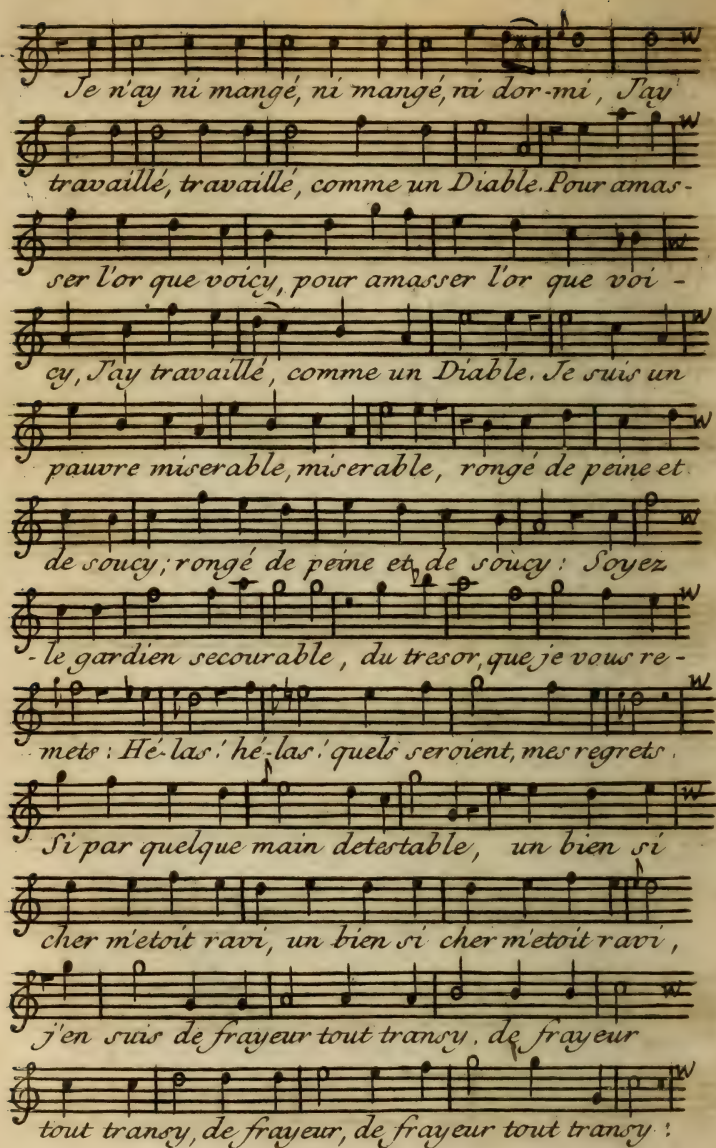 Je n'ay ni mangé, ni mangé, ni dor-mi, J'ay
travaillé, travaillé, comme un Diable. Pour amas-
ser l'or que voicy, pour amasser l'or que voi-
cy, J'ay travaillé, comme un Diable. Je suis un
pauvre miserable, miserable, rongé de peine et
de soucy; rongé de peine et de soucy: Soyez
-le gardien secourable, du tresor, que je vous re-
mets: Hé-las! hé-las! quels seroient, mes regrets.
Si par quelque main detestable, un bien si
cher m'etoit ravi, un bien si cher m'etoit ravi,
j'en suis de frayeur tout transy. de frayeur
tout transy, de frayeur, de frayeur tout transy: